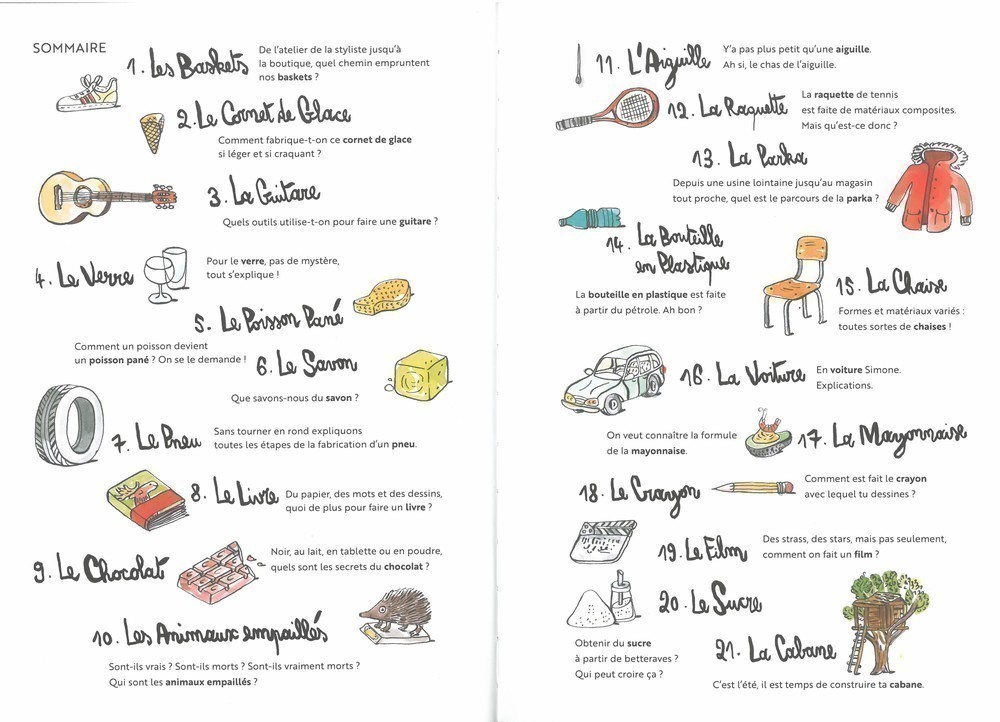 SOMMAIRE
1. Les Baskets
De l'atelier de la styliste jusqu'à
la boutique, quel chemin empruntent
nos baskets ?
2. Le Cornet de Glace
Comment fabrique-t-on ce cornet de glace
si léger et si craquant ?
3. La Guitare
Quels outils utilise-t-on pour faire une guitare ?
4. Le Verre
Pour le verre, pas de mystère,
tout s'explique !
5. Le Poisson Pané
Comment un poisson devient
un poisson pané ? On se le demande !
6. Le Savon
Que savons-nous du savon ?
7. Le Pneu
Sans tourner en rond expliquons
toutes les étapes de la fabrication d'un pneu.
8. Le Livre
Du papier, des mots et des dessins,
quoi de plus pour faire un livre ?
9. Le Chocolat
Noir, au lait, en tablette ou en poudre,
quels sont les secrets du chocolat ?
10. Les Animaux empaillés
Sont-ils vrais ? Sont-ils morts ? Sont-ils vraiment morts ?
Qui sont les animaux empaillés ?
11. L'Aiguille
Y'a pas plus petit qu'une aiguille.
Ah si, le chas de l'aiguille.
12. La Raquette
La raquette de tennis
est faite de matériaux composites.
Mais qu'est-ce donc ?
13. La Parka
Depuis une usine lointaine jusqu'au magasin
tout proche, quel est le parcours de la parka ?
14. La Bouteille
en Plastique
La bouteille en plastique est faite
à partir du pétrole. Ah bon ?
15. La Chaise
Formes et matériaux variés :
toutes sortes de chaises !
16. La Voiture
En voiture Simone.
Explications.
17. La Mayonnaise
On veut connaître la formule
de la mayonnaise.
18. Le Crayon
Comment est fait le crayon
avec lequel tu dessines ?
19. Le Film
Des strass, des stars, mais pas seulement,
comment on fait un film ?
20. Le Sucre
Obtenir du sucre
à partir de betteraves ?
Qui peut croire ça ?
21. La Cabane
C'est l'été, il est temps de construire ta cabane.